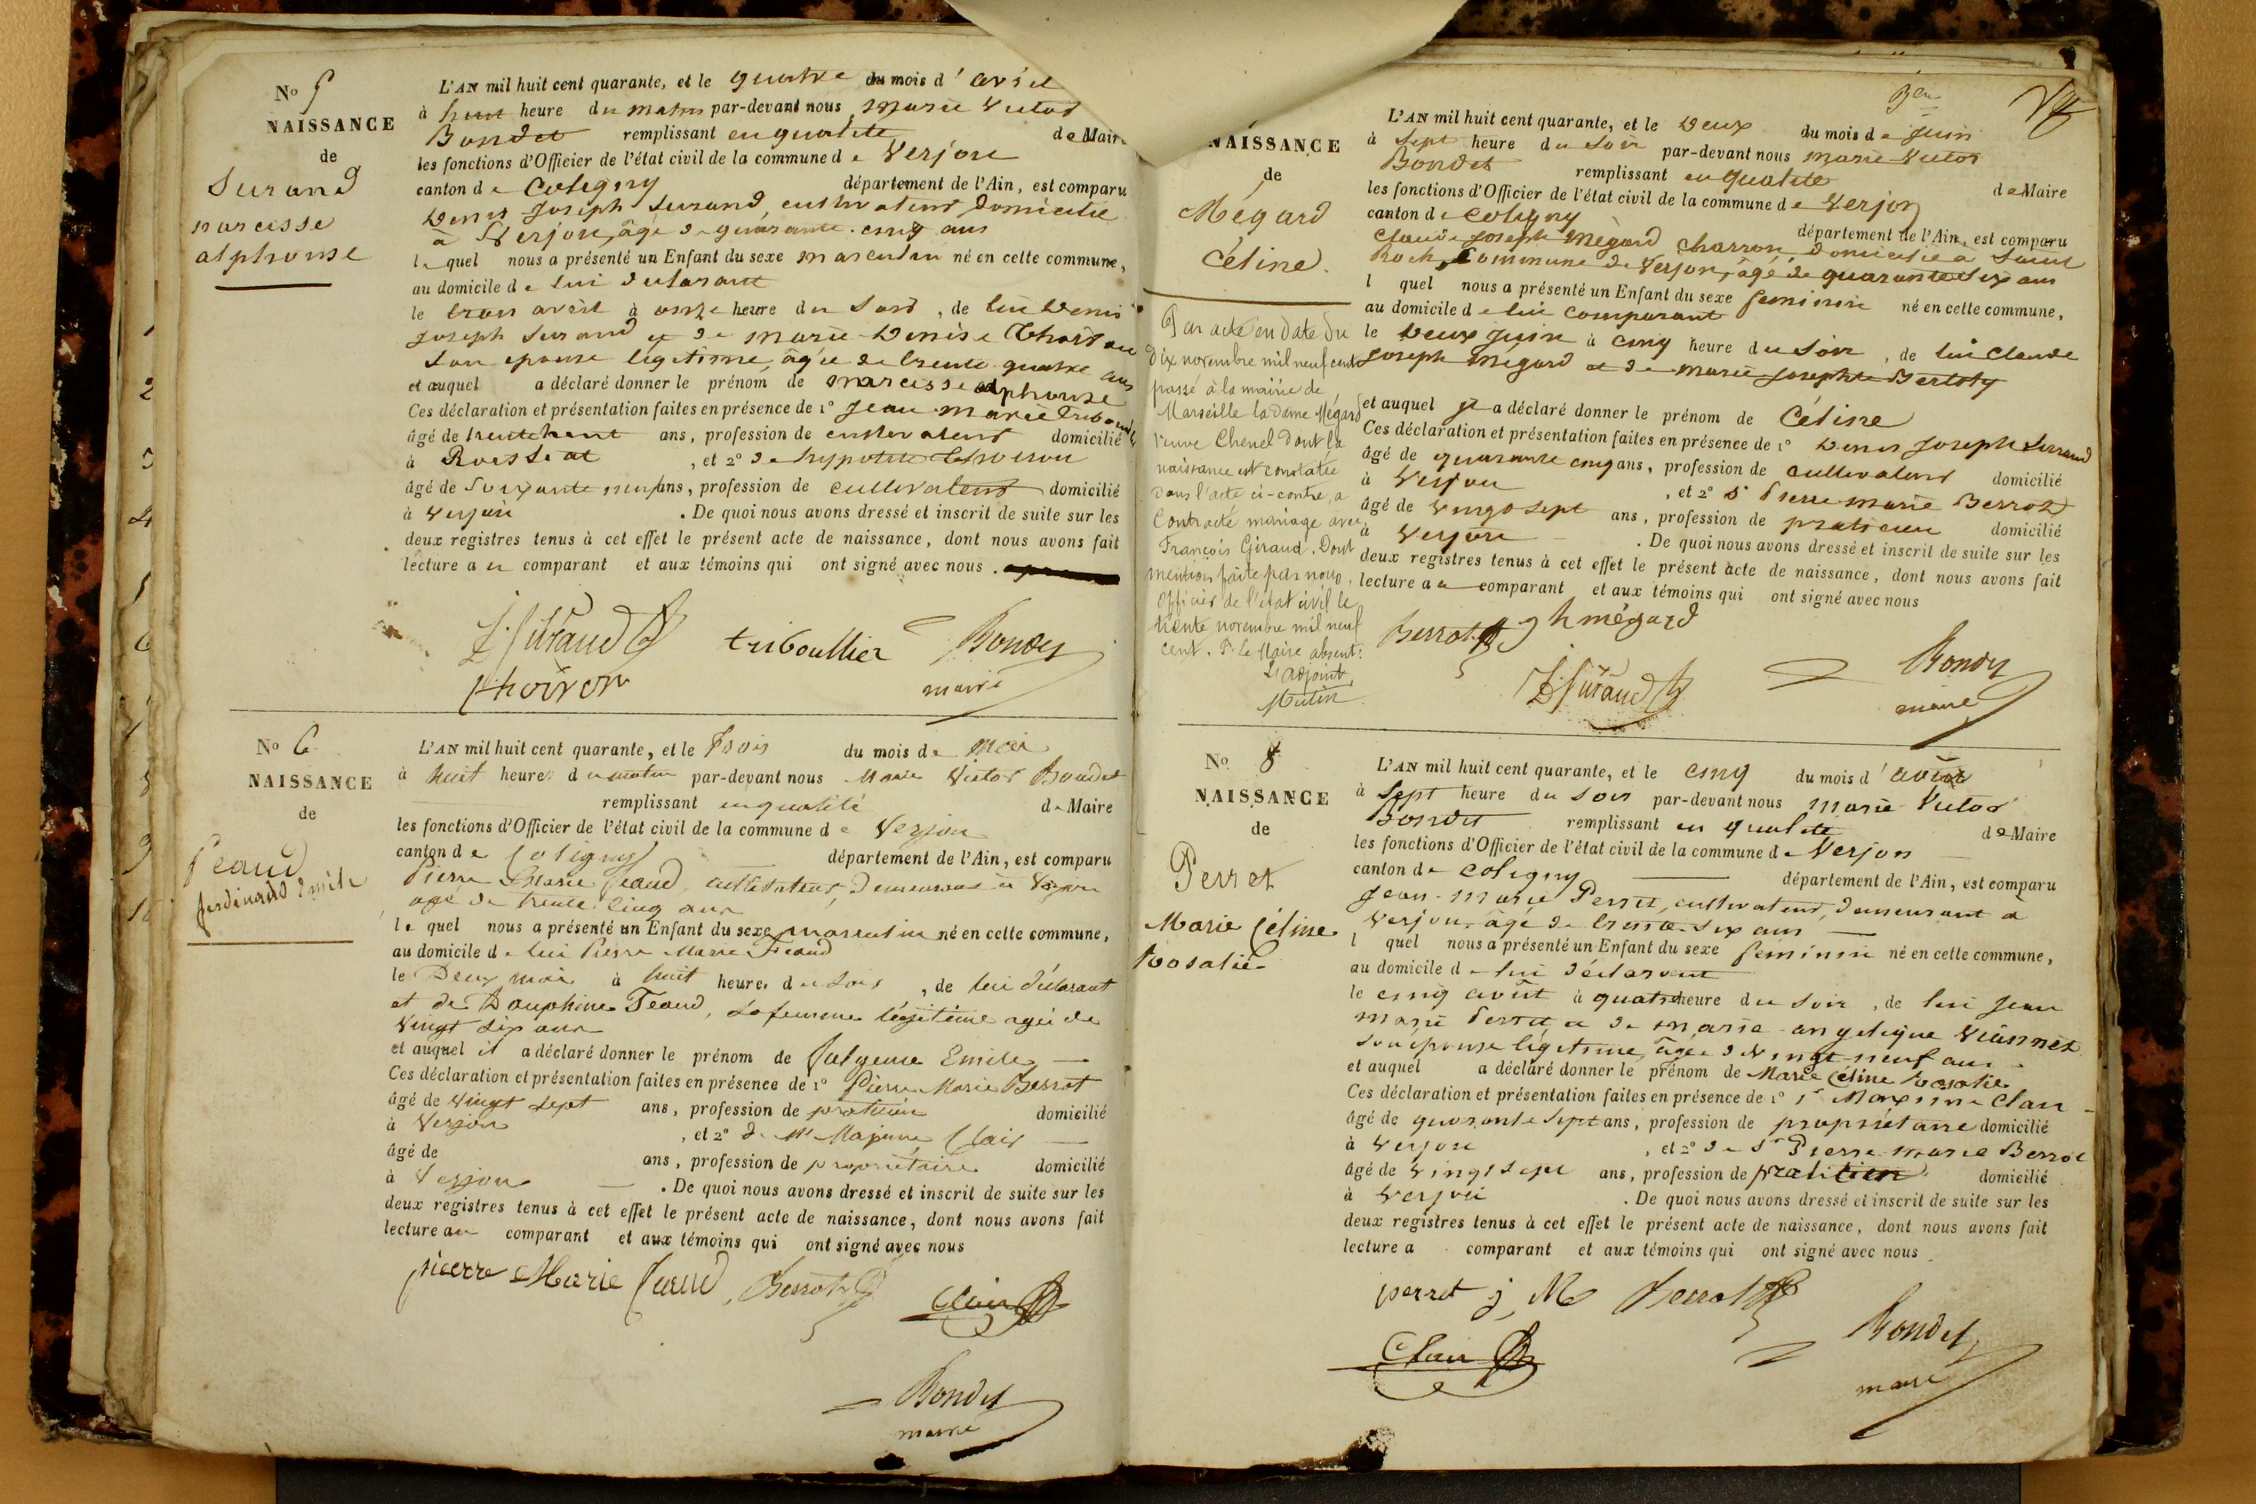 No 5
NAISSANCE
de
Surand
narcisse
alphonse
L'AN mil huit cent quarante, et le quatre du mois d'avril
à huit heure du matin par-devant nous marie Victor
Bondet remplissant en qualité de Maire
les fonctions d'Officier de l'état civil de la commune de Verjon
canton de Coligny département de l'Ain, est comparu
Denis Joseph Surand, cultivateur, domicilié
à Verjon, âgé de quarante-cinq ans
lequel nous a présenté un Enfant du sexe masculin né en cette commune,
au domicile de lui déclarant
le trois avril à onze heure du soir, de lui Denis
Joseph Surand et de marie Denise
son épouse légitime, âgée de trente quatre ans
et auquel a déclaré donner le prénom de narcisse alphonse
Ces déclaration et présentation faites en présence de 1° Jean marie
âgé de ans, profession de cultivateur domicilié
à , et 2° de hypolite
âgé de soixante neuf ans, profession de cultivateur domicilié
à Verjon . De quoi nous avons dressé et inscrit de suite sur les
deux registres tenus à cet effet le présent acte de naissance, dont nous avons fait
lecture au comparant et aux témoins qui ont signé avec nous.
D. J. Surand triboullier Bondet
thoiron maire
No 6
NAISSANCE
de
Feaud
ferdinand Emile
L'AN mil huit cent quarante, et le trois du mois de mai
à huit heures du matin par-devant nous Marie Victor Bondet
remplissant en qualité de Maire
les fonctions d'Officier de l'état civil de la commune de Verjon
canton de Coligny département de l'Ain, est comparu
Pierre Marie Feaud, cultivateur, demeurant à Verjon
âgé de trente cinq ans
lequel nous a présenté un Enfant du sexe masculin né en cette commune,
au domicile de lui Pierre Marie Feaud
le Deux mai à huit heures du soir, de lui déclarant
et de Dauphine Feaud, sa femme légitime agée de
vingt six ans
et auquel il a déclaré donner le prénom de Emile
Ces déclaration et présentation faites en présence de 1° Pierre Marie Berrot
âgé de vingt sept ans, profession de praticien domicilié
à Verjon , et 2° de Mr Clair
âgé de ans, profession de propriétaire domicilié
à Verjon . De quoi nous avons dressé et inscrit de suite sur les
deux registres tenus à cet effet le présent acte de naissance, dont nous avons fait
lecture au comparant et aux témoins qui ont signé avec nous
pierre Marie feaud, Berrot Clair
Bondet
maire
NAISSANCE
de
Mégard
Céline.
Par acte en date du
dix novembre mil neuf cent
passé à la mairie de
Marseille la dame Mégard
veuve Chenel dont la
naissance est constatée
dans l'acte ci-contre, a
contracté mariage avec
François Giraud. Dont
mention faite par nous,
officier de l'état civil le
trente novembre mil neuf
cent. P. le Maire absent:
L'adjoint,
Mutin
L'AN mil huit cent quarante, et le Deux du mois de Juin
à sept heure du soir par-devant nous marie Victor
Bondet remplissant en qualité de Maire
les fonctions d'Officier de l'état civil de la commune de Verjon
canton de Coligny département de l'Ain, est comparu
Claude Joseph Mégard charron domicilié à Saint
Roch, Commune de Verjon, âgé de quarante six ans
l quel nous a présenté un Enfant du sexe feminin né en cette commune,
au domicile de lui comparant
le Deux Juin à cinq heure du soir, de lui Claude
Joseph Mégard et de marie Josephte
et auquel il a déclaré donner le prénom de Céline
Ces déclaration et présentation faites en présence de 1° Denis Joseph Surand
âgé de quarante cinq ans, profession de cultivateur domicilié
à Verjon , et 2° Sr Pierre marie Berrot
âgé de vingt sept ans, profession de praticien domicilié
à Verjon . De quoi nous avons dressé et inscrit de suite sur les
deux registres tenus à cet effet le présent acte de naissance, dont nous avons fait
lecture au comparant et aux témoins qui ont signé avec nous
Berrot mégard
D. J. Surand Bondet
maire
No 8
NAISSANCE
de
Perret
Marie Céline
Rosalie
L'AN mil huit cent quarante, et le cinq du mois d'août
à sept heure du soir par-devant nous marie Victor
Bondet remplissant en qualité de Maire
les fonctions d'Officier de l'état civil de la commune de Verjon
canton de Coligny département de l'Ain, est comparu
Jean-marie Perret, cultivateur, demeurant à
Verjon, âgé de trente-six ans
l quel nous a présenté un Enfant du sexe feminin né en cette commune,
au domicile de lui déclarant
le cinq août à quatre heure du soir, de lui Jean
marie Perret et de marie-angelique Viannet
son épouse légitime, âgée de vingt-neuf ans
et auquel a déclaré donner le prénom de Marie Céline Rosalie
Ces déclaration et présentation faites en présence de 1° Sr Clair
âgé de quarante sept ans, profession de propriétaire domicilié
à Verjon , et 2° de Sr Pierre marie Berrot
âgé de vingt sept ans, profession de praticien domicilié
à Verjon . De quoi nous avons dressé et inscrit de suite sur les
deux registres tenus à cet effet le présent acte de naissance, dont nous avons fait
lecture a comparant et aux témoins qui ont signé avec nous
perret j. M Berrot
Clair Bondet
maire